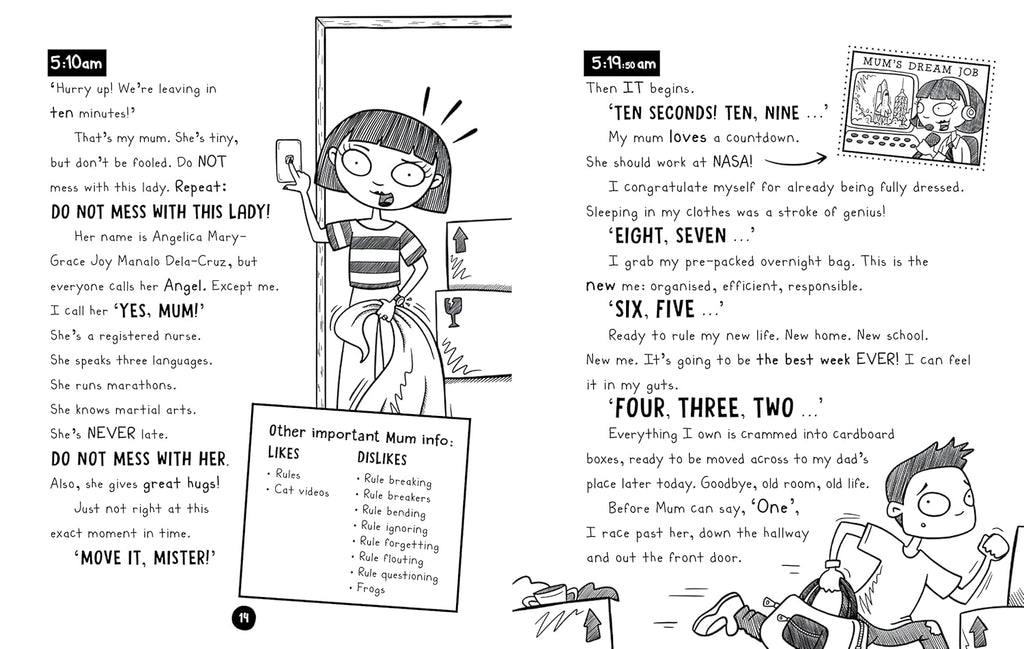 5:10am
‘Hurry up! We’re leaving in
ten minutes!’
That’s my mum. She’s tiny,
but don’t be fooled. Do NOT
mess with this lady. Repeat:
DO NOT MESS WITH THIS LADY!
Her name is Angelica Mary-
Grace Joy Manalo Dela-Cruz, but
everyone calls her Angel. Except me.
I call her ‘YES, MUM!’
She’s a registered nurse.
She speaks three languages.
She runs marathons.
She knows martial arts.
She’s NEVER late.
DO NOT MESS WITH HER.
Also, she gives great hugs!
Just not right at this
exact moment in time.
‘MOVE IT, MISTER!’
Other important Mum info:
LIKES
• Rules
• Cat videos
DISLIKES
• Rule breaking
• Rule breakers
• Rule bending
• Rule ignoring
• Rule forgetting
• Rule flouting
• Rule questioning
• Frogs
14
5:19:50am
Then IT begins.
‘TEN SECONDS! TEN, NINE ...’
My mum loves a countdown.
She should work at NASA!
MUM’S DREAM JOB
I congratulate myself for already being fully dressed.
Sleeping in my clothes was a stroke of genius!
‘EIGHT, SEVEN ...’
I grab my pre-packed overnight bag. This is the
new me: organised, efficient, responsible.
‘SIX, FIVE ...’
Ready to rule my new life. New home. New school.
New me. It’s going to be the best week EVER! I can feel
it in my guts.
‘FOUR, THREE, TWO ...’
Everything I own is crammed into cardboard
boxes, ready to be moved across to my dad’s
place later today. Goodbye, old room, old life.
Before Mum can say, ‘One’,
I race past her, down the hallway
and out the front door.